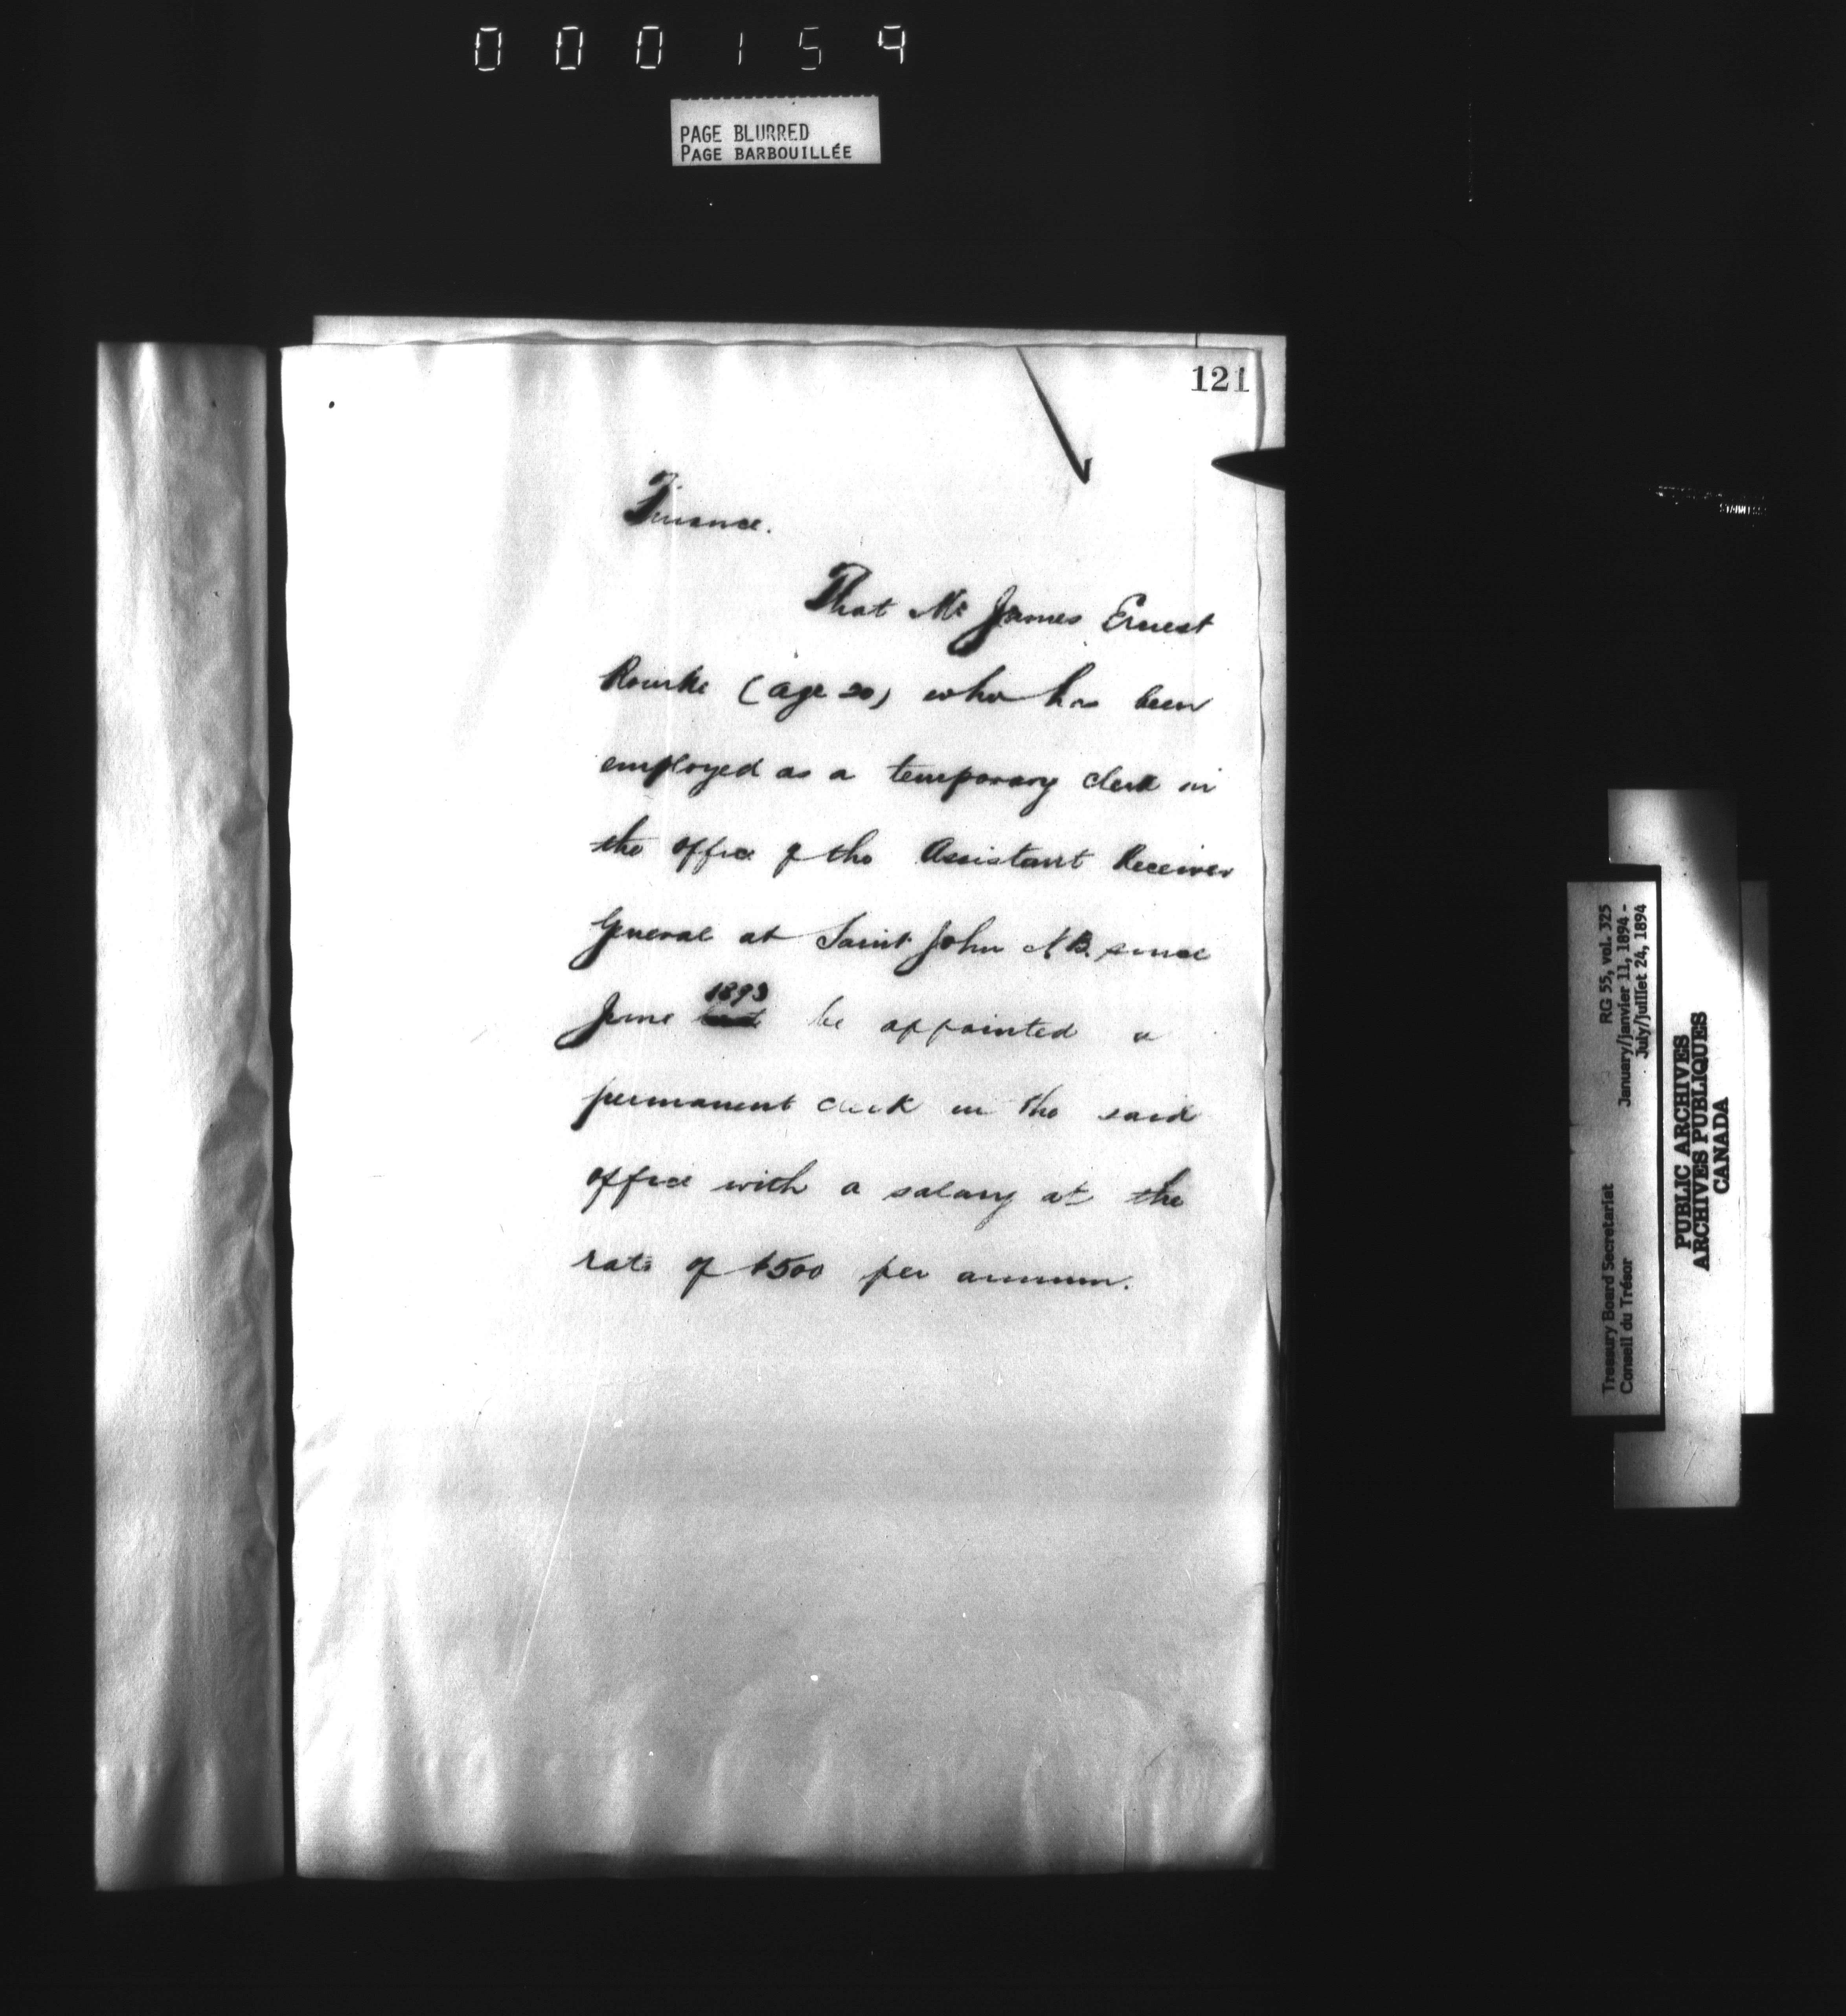 000159
PAGE BLURRED
PAGE BARBOUILLÉE
121
Finance.
That Mr James Ernest
Rourke (age 20) who has been
employed as a temporary clerk in
the office of the Assistant Receiver
General at Saint John N.B. since
1893
June be appointed a
permanent clerk in the said
office with a salary at the
rate of $500 per annum.
Treasury Board Secretariat RG 55, vol. 325
Conseil du Trésor January/janvier 11, 1894 -
July/juillet 24, 1894
PUBLIC ARCHIVES
ARCHIVES PUBLIQUES
CANADA